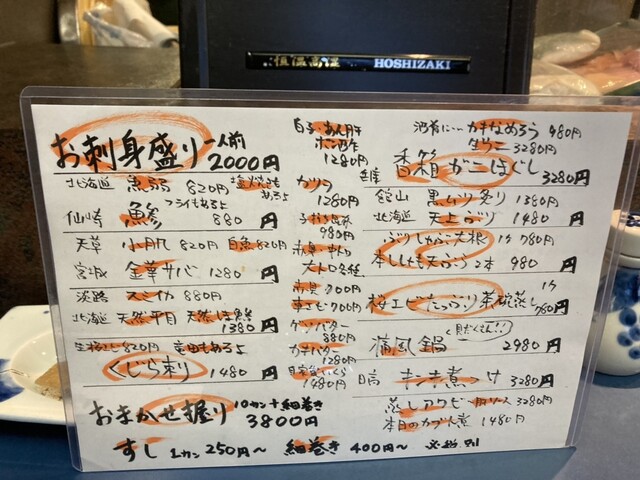 恒温高湿 HOSHIZAKI
お刺身盛り 一人前 2000円
北海道 820円 塩焼きもあるよ
フライもあるよ
仙崎 鯵 880円
天草 小肌 820円 白魚 820円
宮城 金華サバ 1280円
淡路 スミイカ 880円
北海道 天然平目 天然ほ 1380円
生 820円 もあるよ
くじら刺 1480円
おまかせ握り 10カン+細巻き 3800円
すし 1カン250円〜 細巻き400円〜 税別
白子・あん肝
ポン酢 1280円
カツヲ 1280円
980円
700円
700円
バター 880円
カキバター 1280円
1480円
酒肴に… カキなめろう 980円
生ウニ 3280円
香箱ガニほぐし 3280円
館山 黒ムツ炙り 1380円
北海道 天上ブリ 1480円
ぶりしゃぶ大根 1ケ 780円
本ししゃも天ぷら 2本 980円
桜エビたっぷり茶碗蒸し 1ケ 780円
痛風鍋 具だくさん!! 2980円
キンキ煮つけ 3280円
蒸しアワビ 肝ソース 3280円
本日のカブト煮 1480円